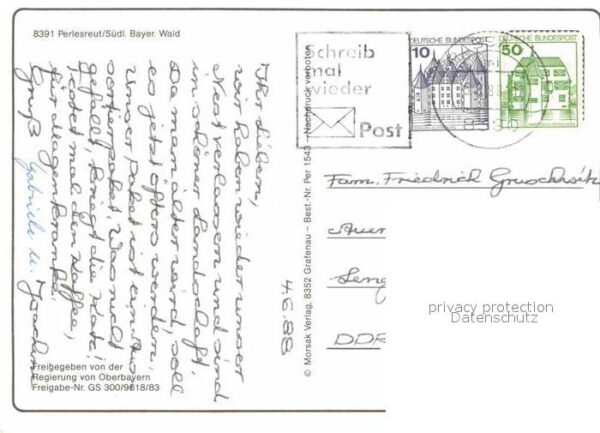 8391 Perlesreut/Südl. Bayer. Wald
Ihr Lieben,
wir haben wieder unser
Nest verlassen und sind
in schöner Landschaft.
Da man älter wird, soll
es jetzt öfters werden.
Unser Paket ist ein Aus-
sortierpaket. Was nicht
gefällt, kriegt die Katz!
Testet mal den Kaffee,
für Magenkranke.
Gruß Gabriele u. Joachim
4.6.88
Freigegeben von der
Regierung von Oberbayern
Freigabe-Nr. GS 300/9618/83
© Morsak Verlag, 8352 Grafenau – Best.-Nr. Per 1543 – Nachdruck verboten
Schreib
mal
wieder
Post
DEUTSCHE BUNDESPOST
10
DEUTSCHE BUNDESPOST
50
Fam. Friedrich
Auer
Leng
DDR
privacy protection
Datenschutz